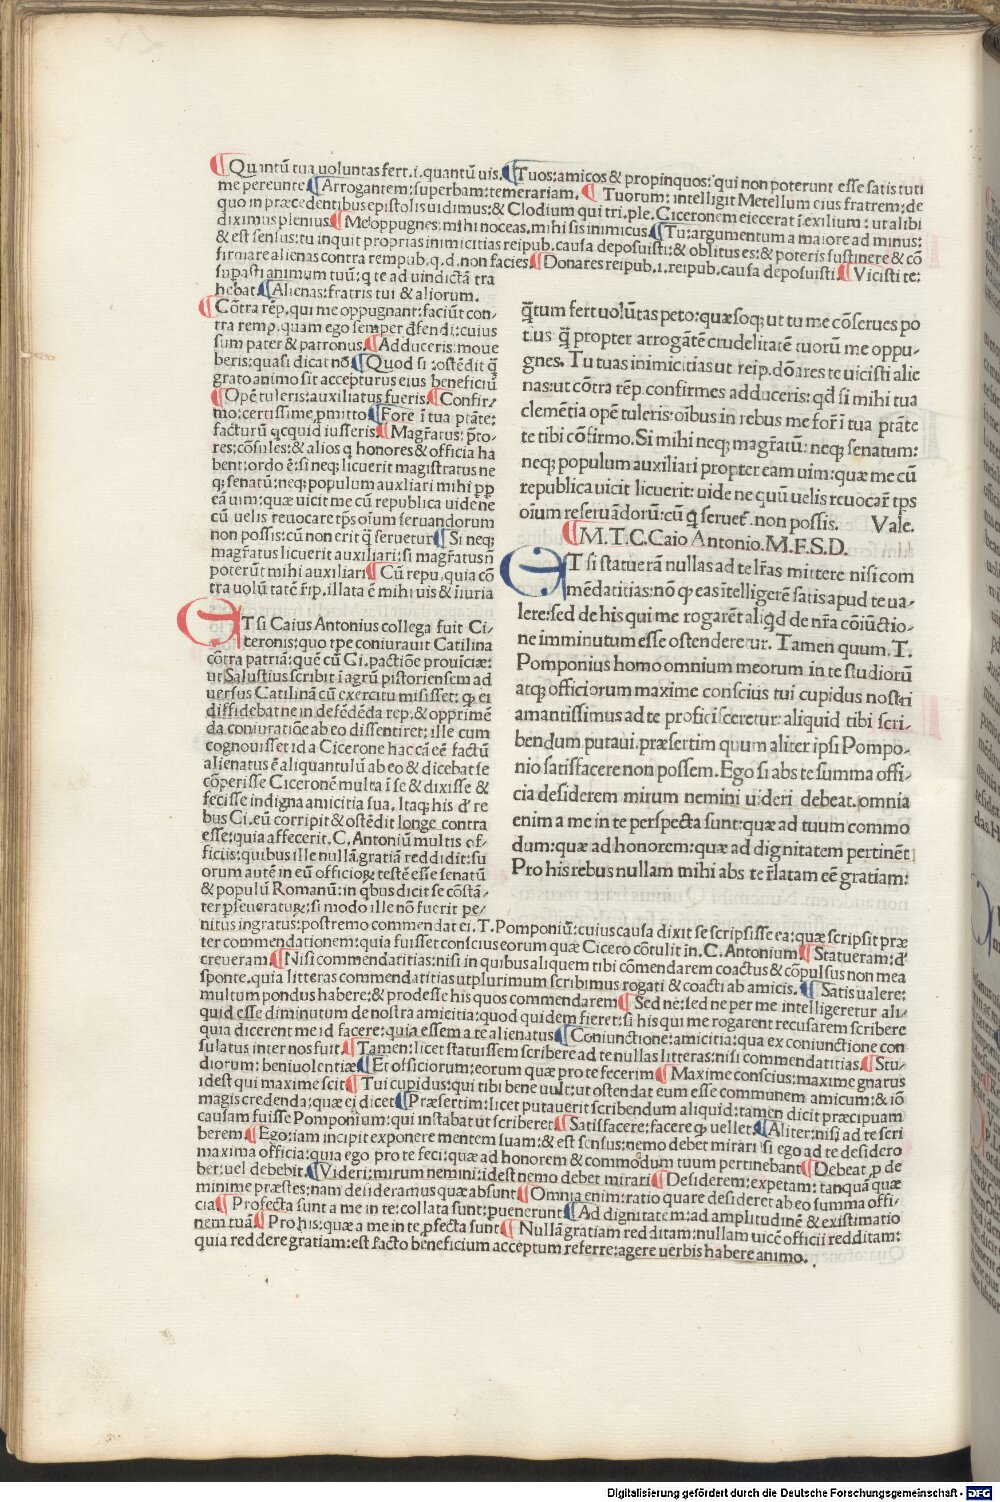 ¶Quantũ tua uoluntas fert.i.quantũ uis.¶Tuos:amicos & propinquos:qui non poterunt esse satis tuti
me pereunte.¶Arrogantem:superbam:temerariam.¶Tuorum:intelligit Metellum eius fratrem:de
quo in præcedentibus epistolis uidimus:& Clodium qui tri.ple.Ciceronem eiecerat ĩ exilium:ut alibi
diximus plenius.¶Me oppugnes:mihi noceas.mihi sis inimicus.¶Tu:argumentum a maiore ad minus:
& est sensus:tu inquit proprias inimicitias reipub.causa deposuisti:& oblitus es:& poteris sustinere & cõ
firmare alienas contra rempub.q.d.non facies.¶Donares reipub.i.reipub.causa deposuisti.¶Vicisti te:
supasti animum tuũ:q te ad uindictã tra
hebat.¶Alienas:fratris tui & aliorum.
¶Cõtra rẽp.qui me oppugnant:faciũt con-
tra remp.quam ego semper dfendi:cuius
sum pater & patronus.¶Adduceris:moue
beris:quasi dicat nõ.¶Quod si:ostẽdit q̃
grato animo sit accepturus eius beneficiũ
¶Opẽ tuleris:auxiliatus fueris.¶Confir-
mo:certissime pmitto.¶Fore ĩ tua ptãte:
facturũ qcquid iusseris.¶Magr̃atus:p̃to-
res:cõsules:& alios q honores & officia ha
bent:ordo ẽ:si neq; licuerit magistratus ne
q; senatũ:neq; populum auxliari mihi pp
eã uim:quæ uicit me cũ republica uide ne
cũ uelis reuocare tp̃s oĩum seruandorum
non possis:cũ non erit q̃ seruetur.¶Si neq;
magr̃atus licuerit auxiliari:si magr̃atus ñ
poterũt mihi auxiliari.¶Cũ repu.quia cõ
tra uolũtatẽ r̃ip.illata ẽ mihi uis & ĩiuria
ET si Caius Antonius collega fuit Ci-
ceronis:quo tp̃e coniurauit Catilina
cõtra patriã:quẽ cũ Ci.pactiõe prouĩciæ:
ut Salustius scribit ĩ agrũ pistoriensem ad
uersus Catilinã cũ exercitu misisset:q̃ ei
diffidebat ne in defẽdẽda rep.& opprimẽ
da coniuratiõe ab eo dissentiret:ille cum
cognouisset id a Cicerone hac cã eẽ factũ
alienatus ẽ aliquantulũ ab eo & dicebat se
cõperisse Ciceronẽ multa ĩ se & dixisse &
fecisse indigna amicitia sua.Itaq; his d̃ re
bus Ci.eũ corripit & ostẽdit longe contra
esse:quia affecerit.C.Antoniũ multis of-
ficiis:quibus ille nullã gratiã reddidit:su
orum autẽ in eũ officiorũ testẽ esse senatũ
& populũ Romanũ:in qbus dicit se cõstã-
ter pseueraturũ:si modo ille nõ fuerit pe-
nitus ingratus:postremo commendat ei.T.Pomponiũ:cuius causa dixit se scripsisse ea:quæ scripsit præ
ter commendationem:quia fuisset conscius eorum quæ Cicero cõtulit in.C.Antonium.¶Statueram:d̃
creueram.¶Nisi commendatitias:nisi in quibus aliquem tibi cõmendarem coactus & cõpulsus non mea
sponte.quia litteras commendatitias utplurimum scribimus rogati & coacti ab amicis.¶Satis ualere:
multum pondus habere:& prodesse his quos commendarem.¶Sed ne:sed ne per me intelligeretur ali-
quid esse diminutum de nostra amicitia:quod quidem fieret:si his qui me rogarent recusarem scribere
quia dicerent me id facere:quia essem a te alienatus.¶Coniunctione:amicitia:qua ex coniunctione con
sulatus inter nos fuit.¶Tamen:licet statuissem scribere ad te nullas litteras:nisi commendatitias.¶Stu-
diorum:beniuolentiæ.¶Et officiorum:eorum quæ pro te fecerim.¶Maxime conscius:maxime gnatus
idest qui maxime scit.¶Tui cupidus:qui tibi bene uult:ut ostendat eum esse communem amicum:& iõ
magis credenda:quæ ei dicet.¶Præsertim:licet putauerit scribendum aliquid:tamen dicit præcipuam
causam fuisse Pomponium:qui instabat ut scriberet.¶Satisfacere:facere q̃ uellet.¶Aliter:nisi ad te scri
berem.¶Ego:iam incipit exponere mentem suam:& est sensus:nemo debet mirari si ego ad te desidero
maxima officia:quia ego pro te feci:quæ ad honorem & commodum tuum pertinebant.¶Debeat p de
bet:uel debebit.¶Videri:mirum nemini:idest nemo debet mirari.¶Desiderem:expetam:tanquã quæ
minime præstes:nam desideramus quæ absunt.¶Omnia enim:ratio quare desideret ab eo summa offi-
cia.¶Profecta sunt a me in te:collata sunt:puenerunt.¶Ad dignitatem:ad amplitudinẽ & existimatio
nem tuã.¶Pro his:quæ a me in te pfecta sunt.¶Nullã gratiam redditam:nullam uicẽ officii redditam:
quia reddere gratiam:est facto beneficium acceptum referre:agere uerbis habere animo.
q̃tum fert uolũtas peto:quæsoq; ut tu me cõserues po
tius q̃ propter arrogãtẽ crudelitatẽ tuorũ me oppu-
gnes. Tu tuas inimicitias ut reip.dõares te uicisti alie
nas:ut cõtra rẽp confirmes adduceris:qd si mihi tua
clemẽtia opẽ tuleris:oĩbus in rebus me for̃ ĩ tua ptãte
te tibi cõfirmo.Si mihi neq; magr̃atũ:neq; senatum:
neq; populum auxiliari propter eam uim:quæ me cũ
republica uicit licuerit:uide ne quũ uelis reuocar̃ tp̃s
oĩum reseruãdorũ:cũ q̃ seruet̃ non possis. Vale.
¶M.T.C.Caio Antonio.M.F.S.D.
ET si statuerã nullas ad te lr̃as mittere nisi com
mẽdatitias:nõ q̃ eas ĩtelligerẽ satis apud te ua-
lere:sed de his qui me rogarẽt aliqd de nr̃a cõiũctio-
ne imminutum esse ostenderetur. Tamen quum.T.
Pomponius homo omnium meorum in te studiorũ
atq; officiorum maxime conscius tui cupidus nostri
amantissimus ad te proficisceretur:aliquid tibi scri-
bendum putaui.præsertim quum aliter ipsi Pompo-
nio satisfacere non possem. Ego si abs te summa offi-
cia desiderem mirum nemini uideri debeat.omnia
enim a me in te perspecta sunt:quæ ad tuum commo
dum:quæ ad honorem:quæ ad dignitatem pertinẽt
Pro his rebus nullam mihi abs te r̃latam eẽ gratiam:
Digitalisierung gefördert durch die Deutsche Forschungsgemeinschaft - DFG